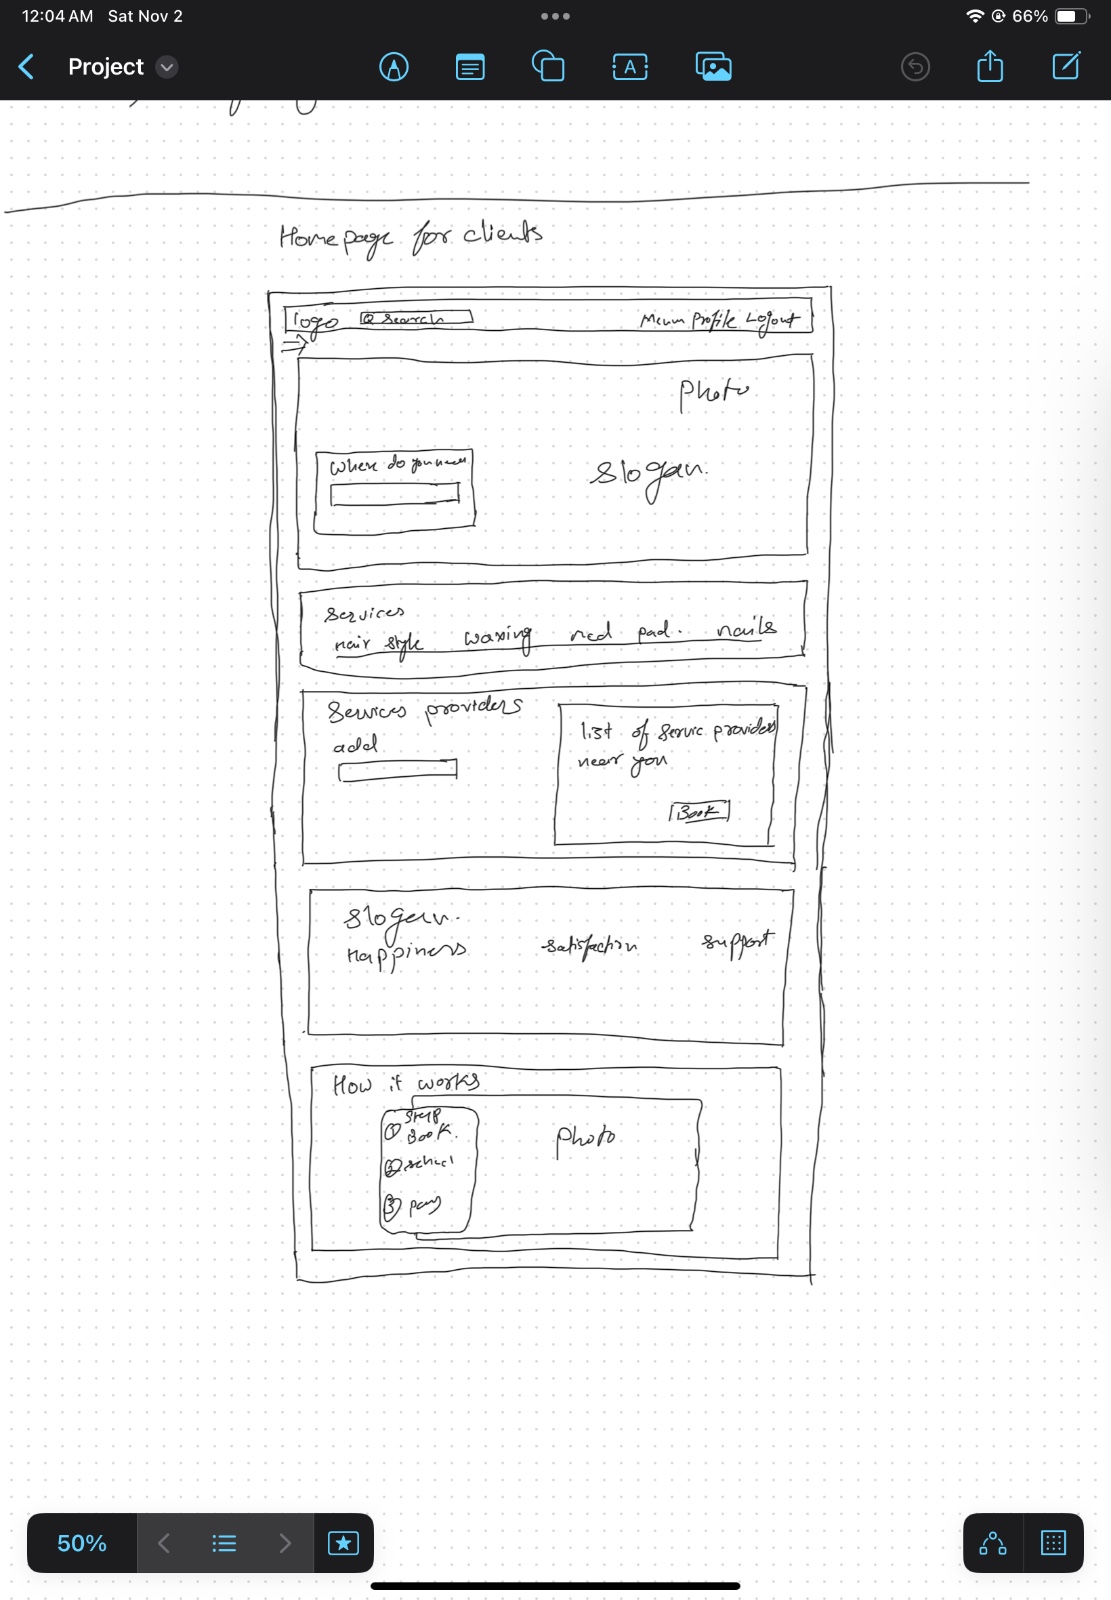 12:04 AM Sat Nov 2
66%
Project
A
Homepage for clients
logo
Search
Menu Profile Logout
Photo
Where do you need
Slogan.
Services
Hair style waxing med pad. nails
Services providers
add
list of servic providers
near you
Book
Slogan.
Happiness satisfaction support
How it works
Step
1 Book.
2
3 pay
Photo
50%